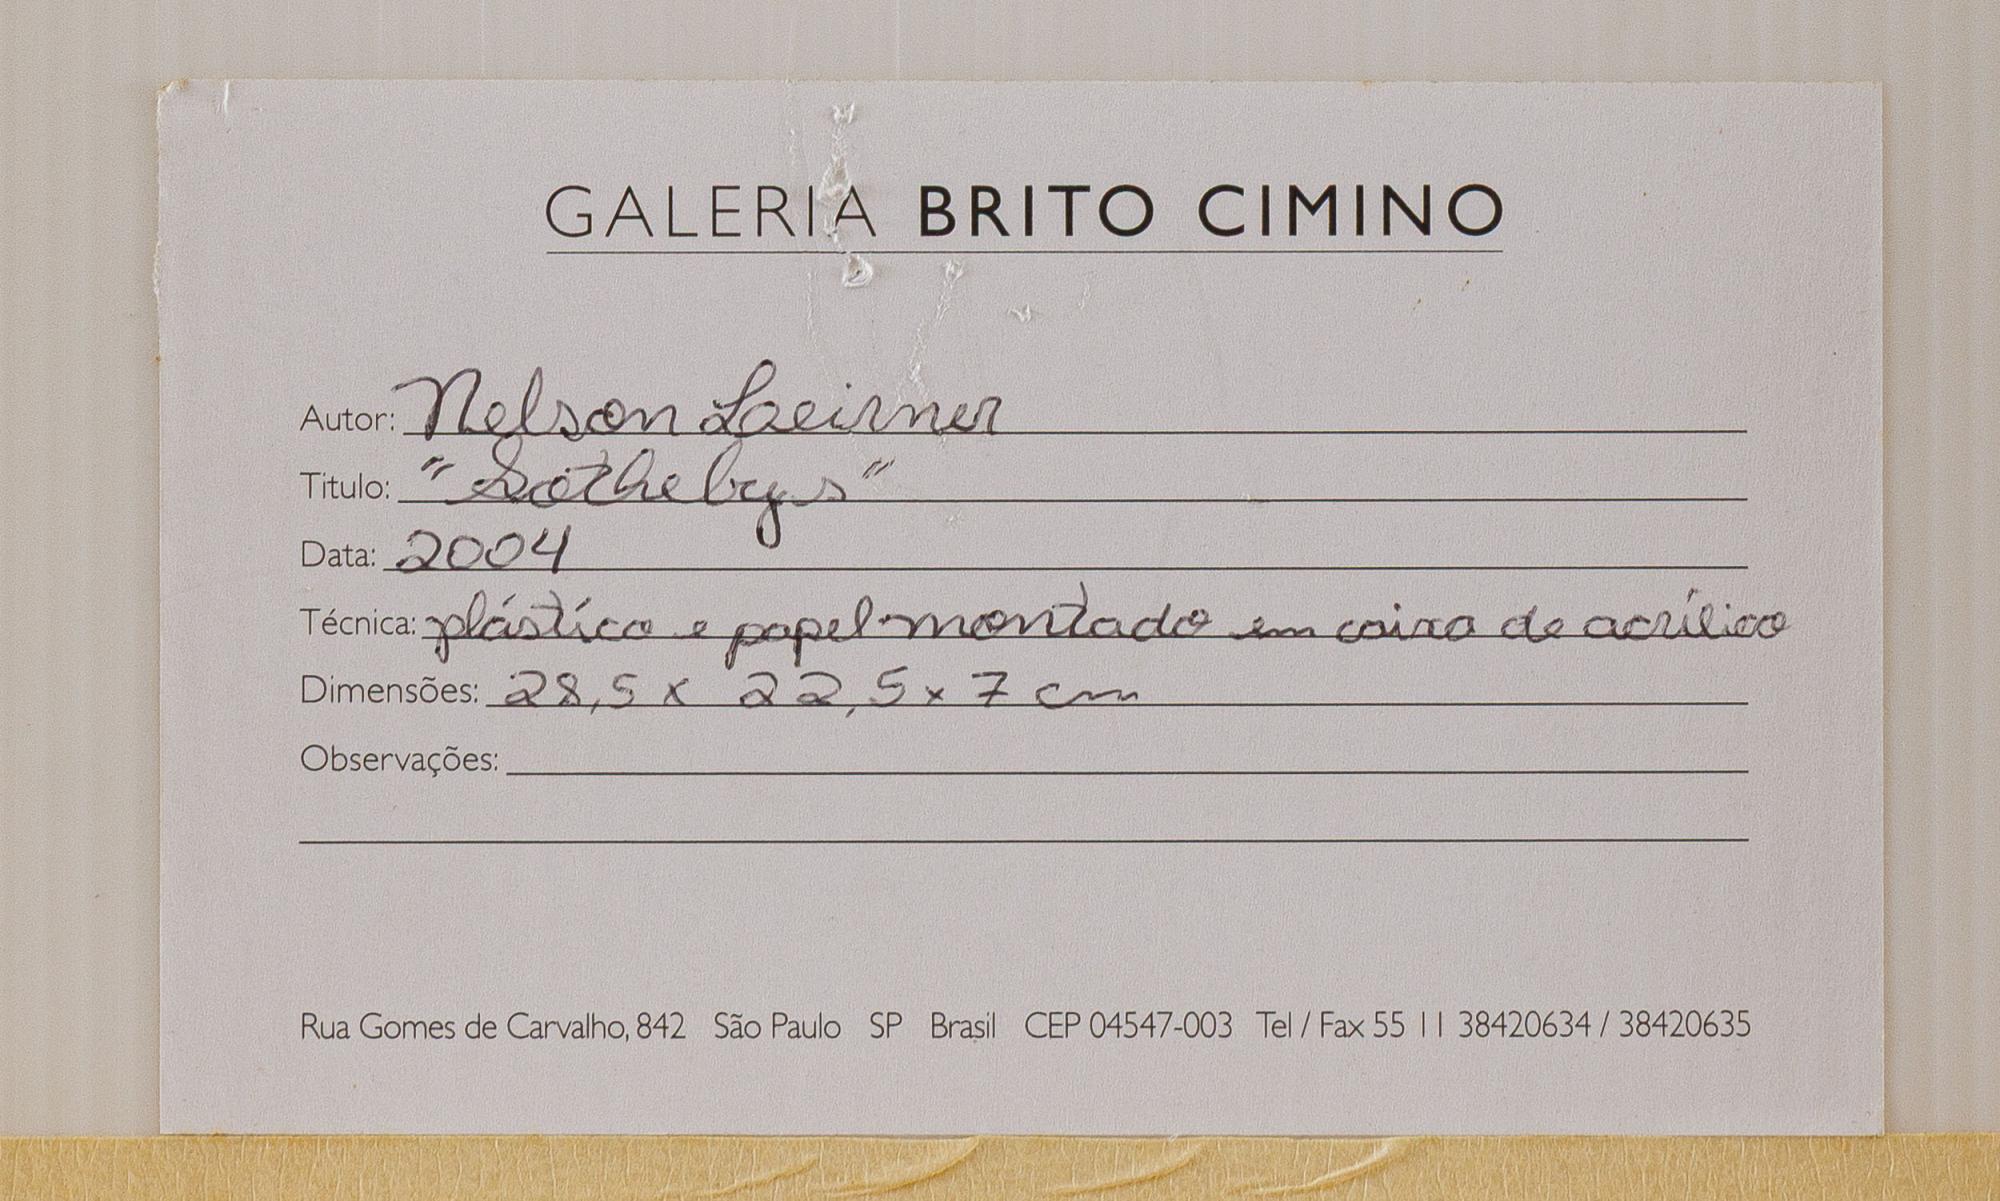 GALERIA BRITO CIMINO
Autor: Nelson Leirner
Titulo: "Sothebys"
Data: 2004
Técnica: plástico e papel montado em caixa de acrílico
Dimensões: 28,5 x 22,5 x 7 cm
Observações:
Rua Gomes de Carvalho, 842 São Paulo SP Brasil CEP 04547-003 Tel / Fax 55 11 38420634 / 38420635